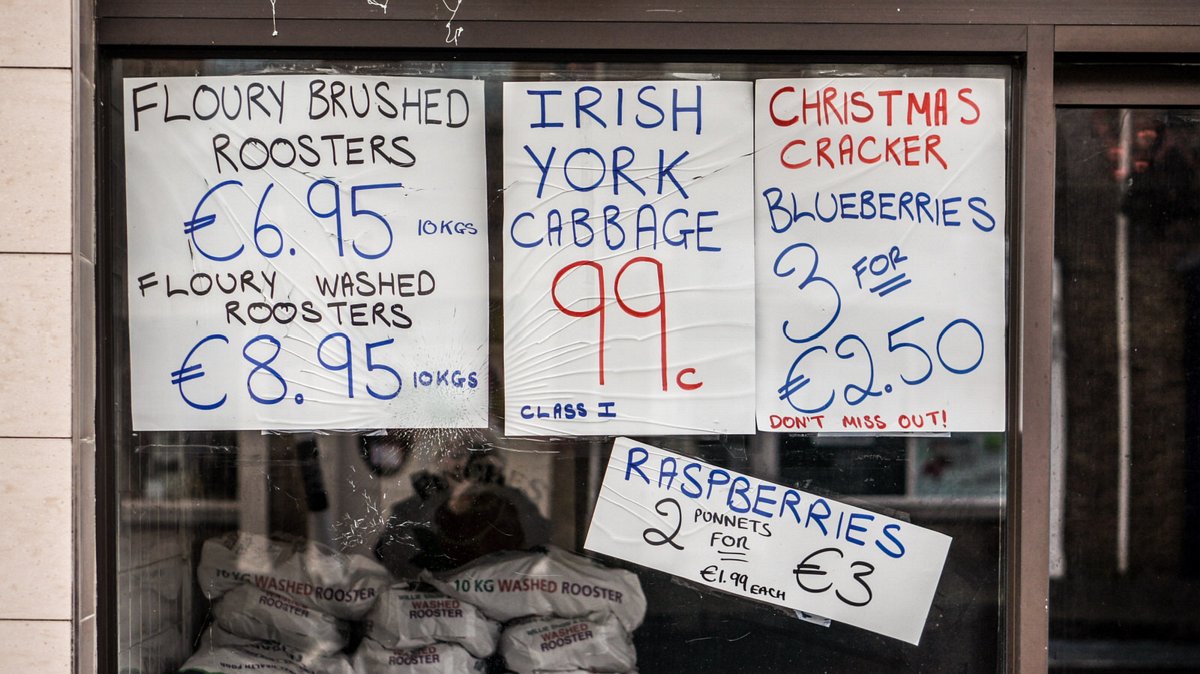 FLOURY BRUSHED
ROOSTERS
€6.95 10KGS
FLOURY WASHED
ROOSTERS
€8.95 10KGS
IRISH
YORK
CABBAGE
99c
CLASS I
CHRISTMAS
CRACKER
BLUEBERRIES
3 FOR
€2.50
DON'T MISS OUT!
RASPBERRIES
2 PUNNETS
FOR
€1.99 EACH
€3
10 KG WASHED ROOSTER
WASHED
ROOSTER
10 KG WASHED ROOSTER
WASHED
ROOSTER
WASHED
ROOSTER
WASHED
ROOSTER